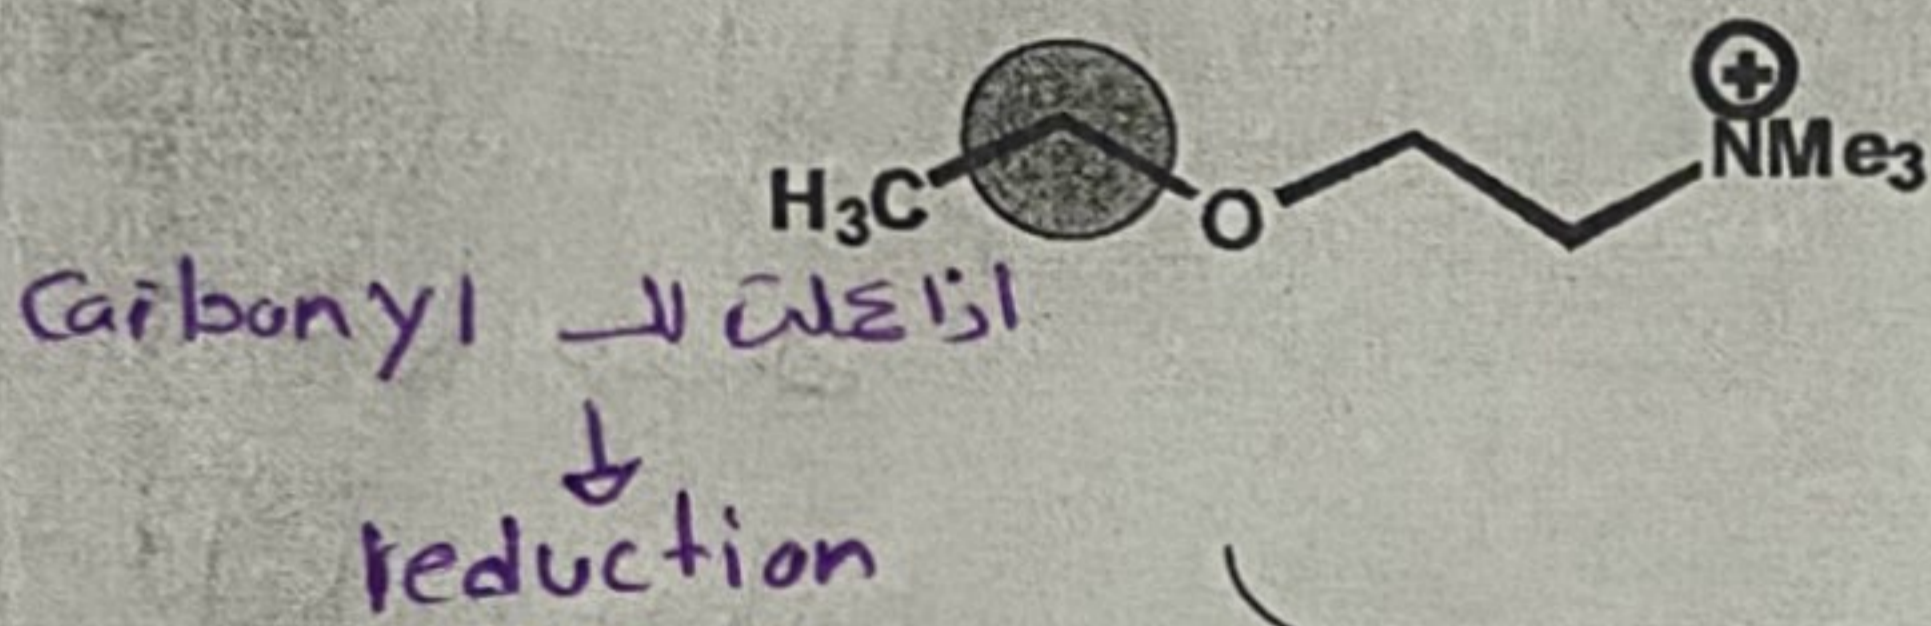 H₃C O NMe₃ ⊕
اذا عملت لل Carbonyl
reduction